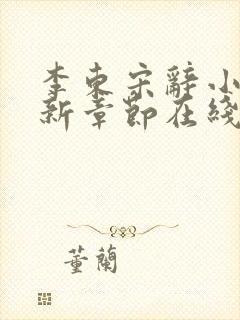 李东宋辭小
新章節在綫
董蘭